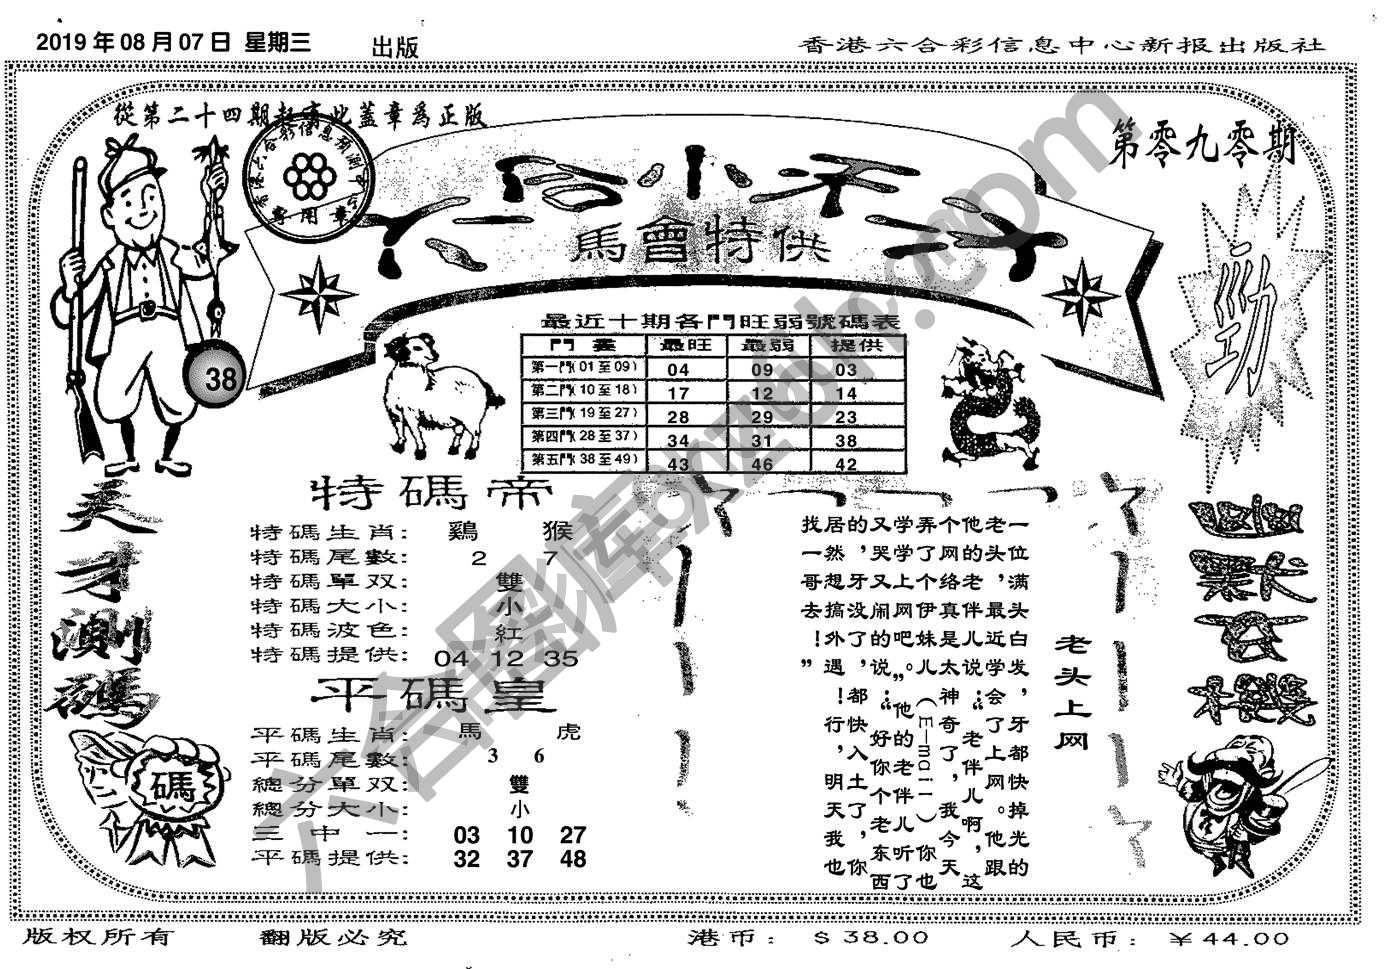 2019 年 08 月 07 日 星期三
出版
香港六合彩信息中心新报出版社
從第二十四期起蓋此蓋章爲正版
第零九零期
六合小子
馬會特供
勁
38
最近十期各門旺弱號碼表
最旺 最弱 提供
第一門( 01 至 09 ) 04 09 03
第二門( 10 至 18 ) 17 12 14
第三門( 19 至 27 ) 28 29 23
第四門( 28 至 37 ) 34 31 38
第五門( 38 至 49 ) 43 46 42
天才測碼
特碼帝
特碼生肖: 鷄 猴
特碼尾數: 2 7
特碼單双: 雙
特碼大小: 小
特碼波色: 紅
特碼提供: 04 12 35
平碼皇
平碼生肖: 馬 虎
平碼尾數: 3 6
總分單双: 雙
總分大小: 小
三中一: 03 10 27
平碼提供: 32 37 48
碼
老头上网
一位满头白发，牙都快掉光的
老头，最近学会了上网。他跟
他的老伴儿说：“老伴儿啊，这
个网络真是太神奇了，我今天
弄了个伊妹儿（E—mail）你也
学学上网吧。”他的老伴儿听了
又哭又闹的说：“好你个老东西
的，牙没了，都快入土了，你
居然想搞外遇！行，明天我也
找一哥去！”
六合图库
版权所有 翻版必究
港币: $ 38.00 人民币: ￥ 44.00